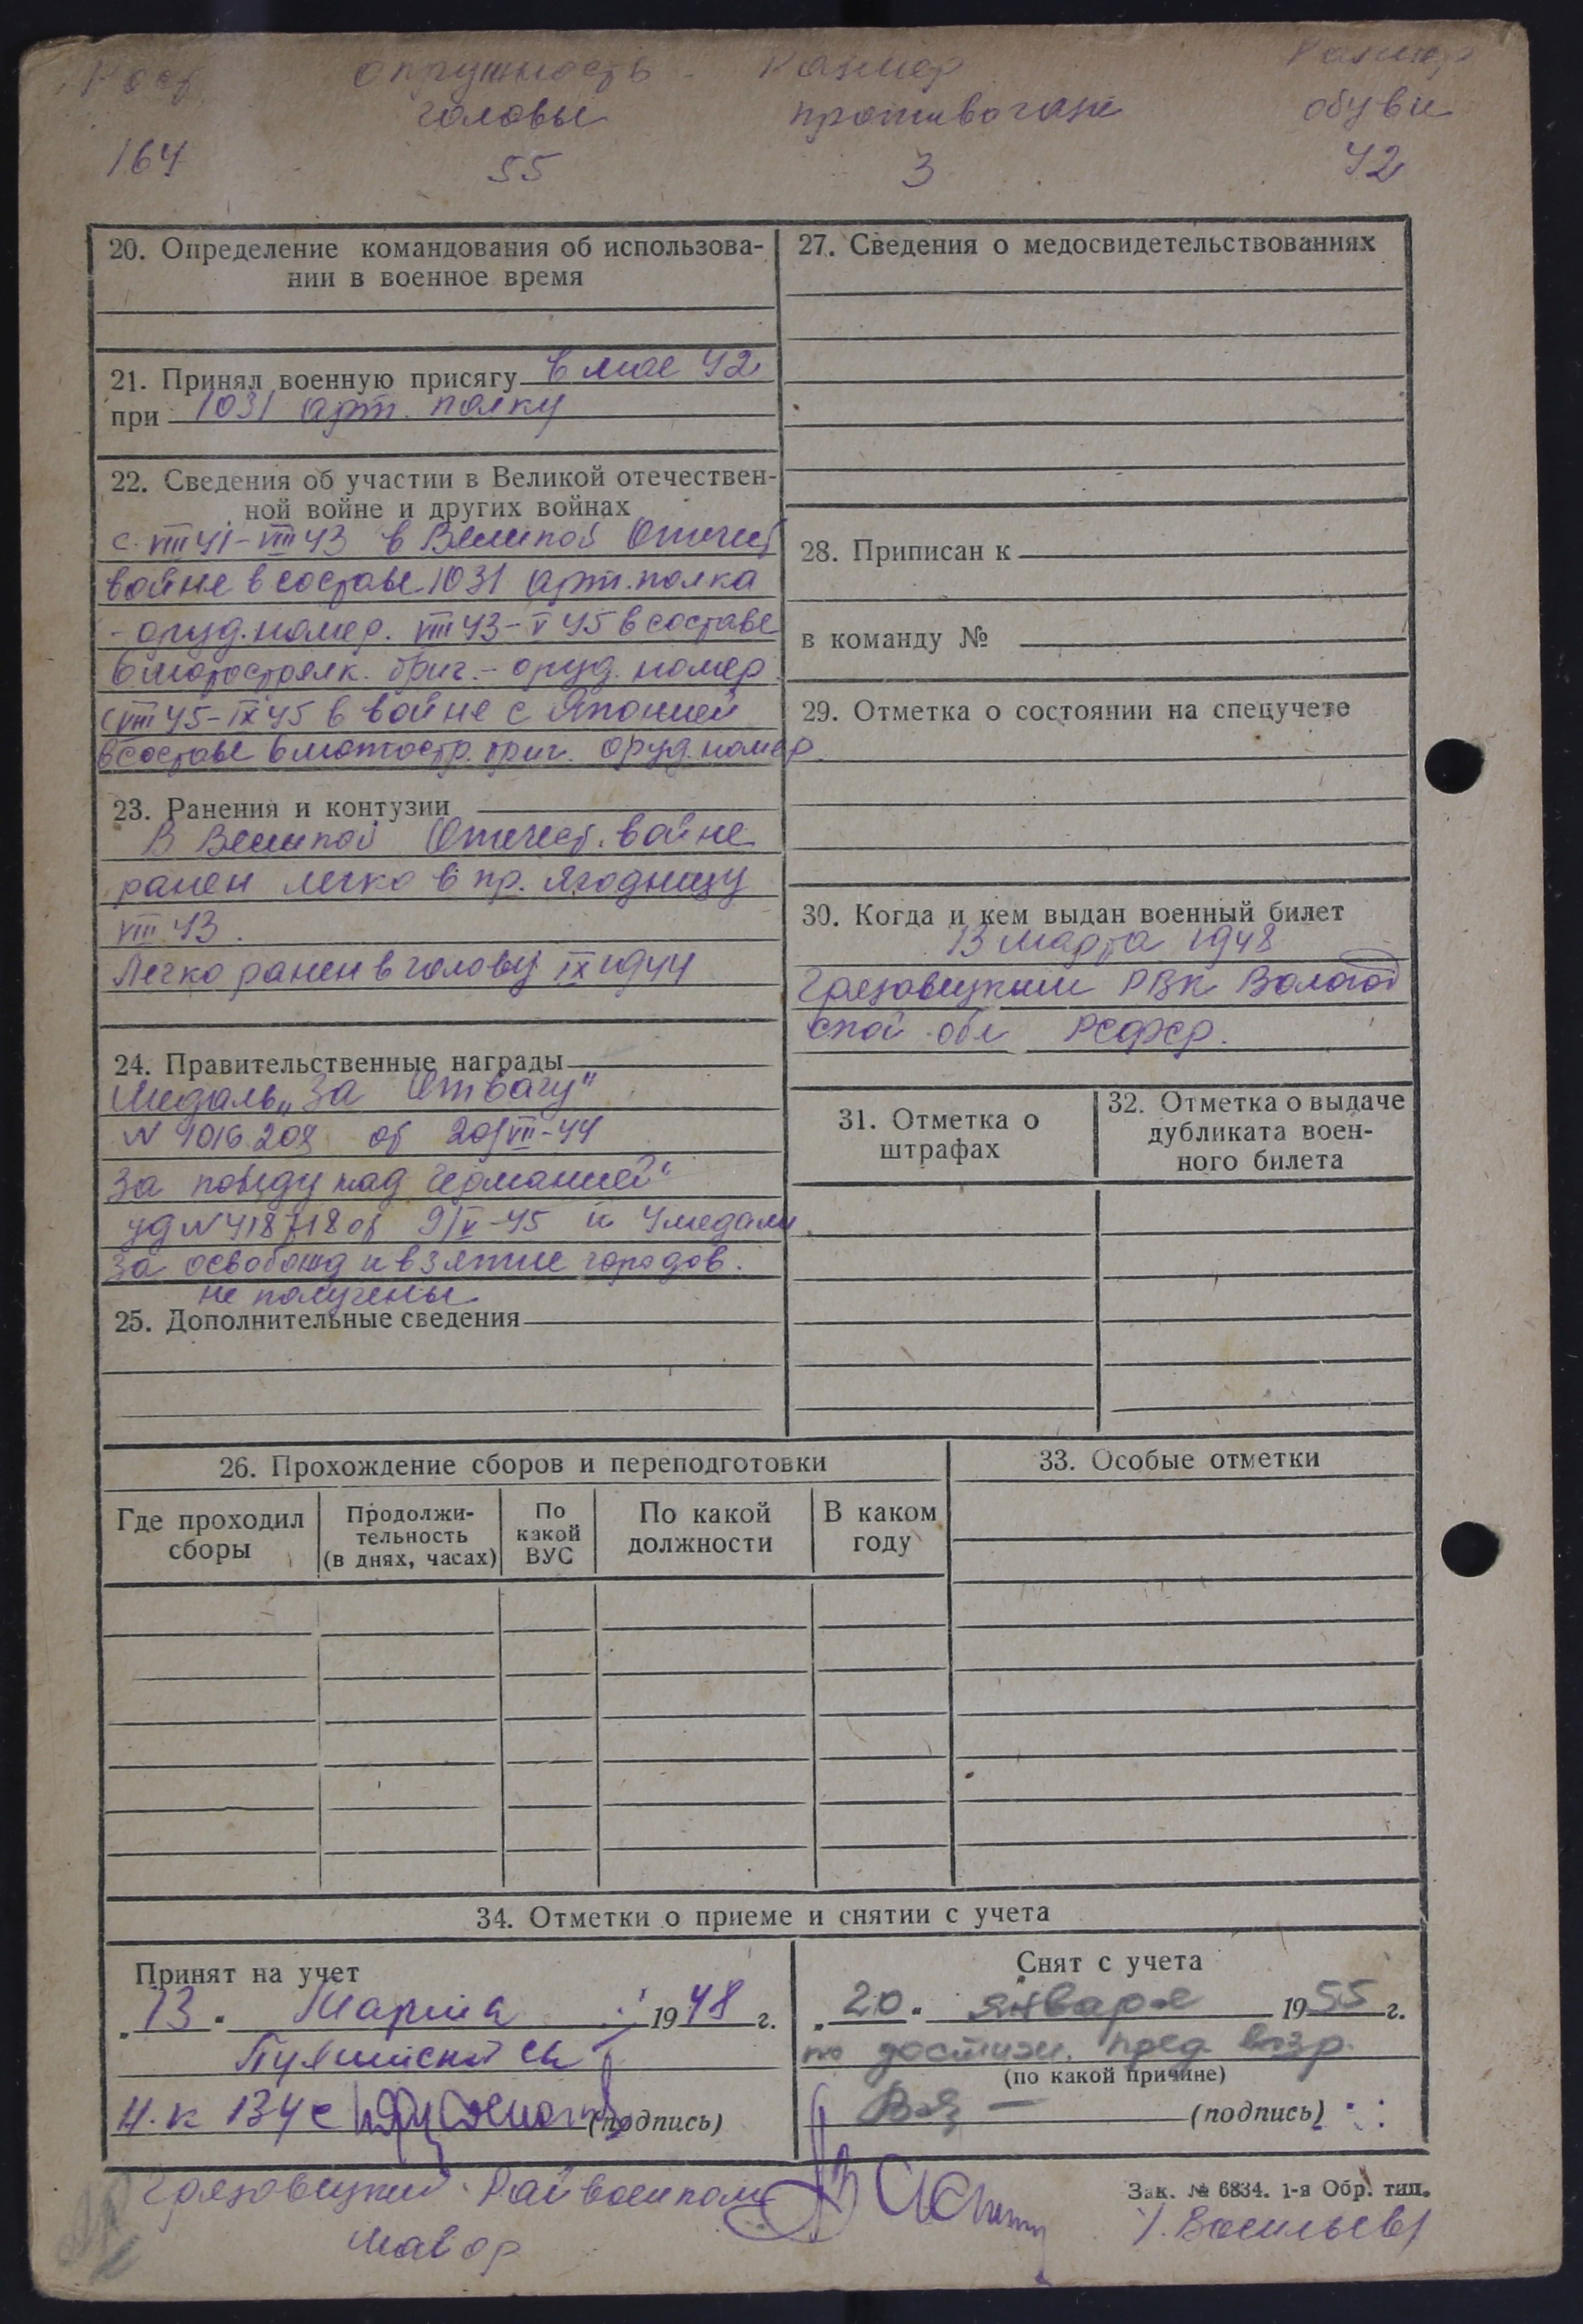 Рост окружность - Размер Размер
головы противогаза обуви
164 55 3 42
20. Определение командования об использова-
нии в военное время
21. Принял военную присягу в мае 42
при 1031 арт. полку
22. Сведения об участии в Великой отечествен-
ной войне и других войнах
с VIII 41 - VIII 43 в Великой Отечест
войне в составе 1031 арт. полка
- оруд. номер. VIII 43 - V 45 в составе
6 мотострелк. бриг. - оруд. номер
с VIII 45 - IX 45 в войне с Японией
в составе 6 мотостр. бриг. оруд. номер
23. Ранения и контузии
В Великой Отечест. войне
ранен легко в пр. ягодницу
VIII 43.
Легко ранен в голову IX 1944
24. Правительственные награды
Медаль „За Отвагу"
N 1016209 от 20/VII-44
За победу над Германией"
уд N 418718 от 9/V-45 и 4 медали
за освобожд и взятие городов.
не получены
25. Дополнительные сведения
27. Сведения о медосвидетельствованиях
28. Приписан к
в команду №
29. Отметка о состоянии на спецучете
30. Когда и кем выдан военный билет
13 марта 1948
Грязовецким РВК Вологод
ской обл РСФСР.
31. Отметка о
штрафах
32. Отметка о выдаче
дубликата воен-
ного билета
26. Прохождение сборов и переподготовки
Где проходил
сборы
Продолжи-
тельность
(в днях, часах)
По
какой
ВУС
По какой
должности
В каком
году
33. Особые отметки
34. Отметки о приеме и снятии с учета
Принят на учет
„13" Марта 1948 г.
Н. к 134 с
(подпись)
Снят с учета
„20" января 1955 г.
по достиж. пред. возр.
(по какой причине)
(подпись)
Грязовецкий Райвоенком
Майор
Зак. № 6834. 1-я Обр. тип.
/. Васильев/